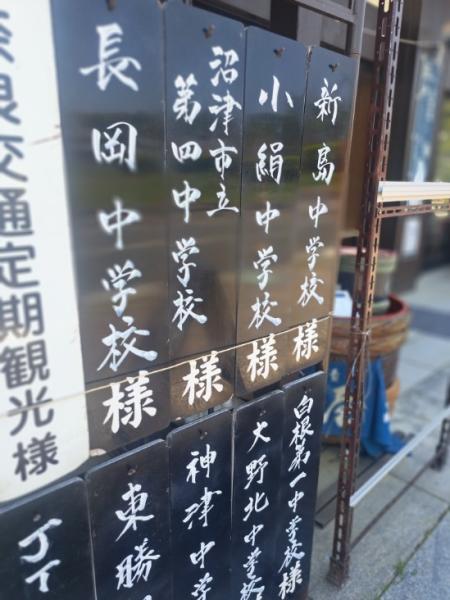 新島中学校様
小絹中学校様
沼津市立
第四中学校様
長岡中学校様
奈良交通定期観光様
白根第一中学校様
大野北中学校
神津中学
東勝